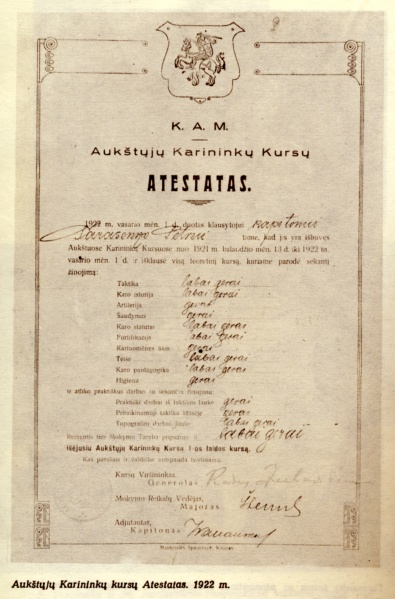 K. A. M.
Aukštųjų Karininkų Kursų
ATESTATAS.
1922 m. vasario mėn. 1 d. duotas klausytojui kapitonui
Petrui tame, kad jis yra išbuvęs
Aukštuose Karininkų Kursuose nuo 1921 m. balandžio mėn. 13 d. iki 1922 m.
vasario mėn. 1 d. ir išklausė visą teoretinį kursą, kuriame parodė sekantį
žinojimą:
Taktika labai gerai
Karo istorija labai gerai
Artilerija gerai
Šaudymas gerai
Karo statutai labai gerai
Fortifikacija labai gerai
Kariuomenės gerai
Teisė labai gerai
Karo pedagogika labai gerai
Higiena gerai
ir atliko praktikos darbus su sekančiu
Praktiški darbai iš taktikos lauke gerai
Pritaikinamoji taktika klasėje gerai
Topografijos darbai lauke labai gerai
Remiantis tuo Mokymo Taryba pripažino jį labai gerai
išėjusiu Aukštųjų Karininkų Kursų I-os laidos kursą.
Kas parašais ir valdišku antspaudu tvirtinama.
Kursų Viršininkas,
Generolas
Mokymo Reikalų Vedėjas,
Majoras
Adjutantas,
Kapitonas
Aukštųjų Karininkų kursų Atestatas. 1922 m.